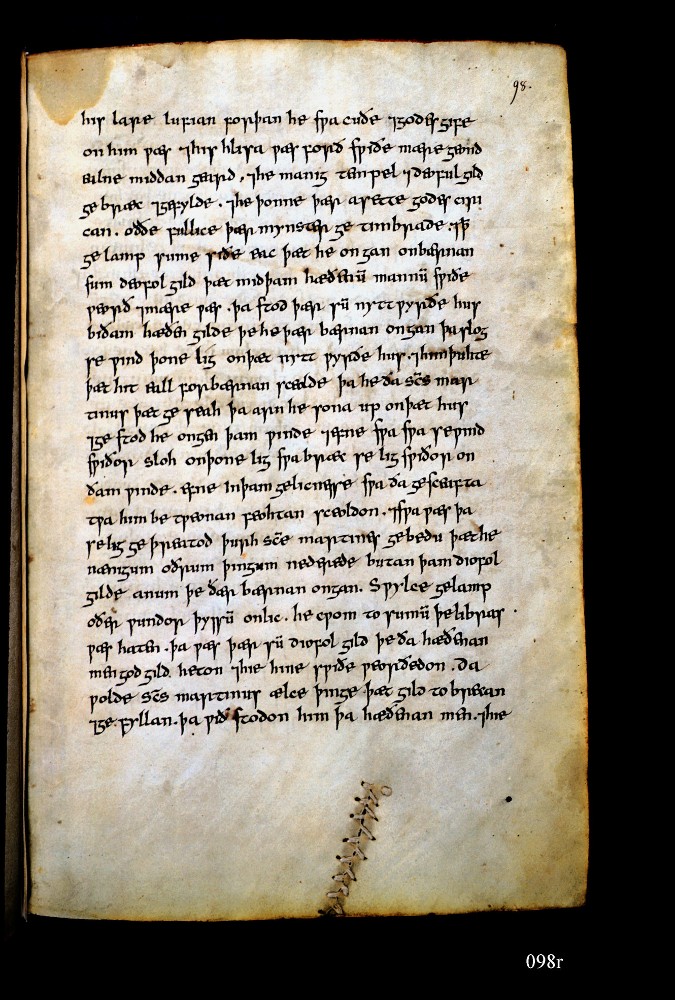 98.
his lare lufian forþan he swa cuðe ⁊godes gife
on him wæs ⁊his hlisa wæs forð swiðe mære geond
ealne middan geard, ⁊he manig tempel ⁊deoful gild
ge bræc ⁊gefylde. ⁊he þonne þær asette godes ciri
can. oððe fullice þær mynster ge timbrade.
ge lamp sume siðe eac þæt he on gan onbærnan
sum deofol gild þæt midþam hæðenū mannū swiðe
weorð ⁊mære wæs. þa stod þær sū nytt wyrðe hus
biðam hæðen gilde þe he þær bærnan ongan þa slog
se wind þone lig onþæt nytt wyrðe hus. ⁊him þuhte
þæt hit eall forbærnan sceolde þa he ða sc̄s mar
tinus þæt ge seah þa arn he sona up onþæt hus
⁊ge stod he ongen þam winde ⁊efne swa swa se wind
swiðor sloh onþone lig swa bræc se lig swiðor on
ðam winde. efne inþam gelicnesse swa ða gesceafta
twa him be tweonan feohtan sceoldon. ⁊swa wæs þa
se lig ge þreatod þurh sc̄e martines gebedu þæt he
nængum oðrum þingum ne derede butan þam diofol
gilde anum þe ðær bærnan ongan. Swylce gelamp
oðer wundor þyssū onlic. he cwom to sumū þe libras
wæs haten. þa wæs þær sū diofol gild þe ða hæðenan
men god gild heton ⁊hie hine swiðe weorðedon. ða
wolde sc̄s martinus ælce þinge þæt gild to brecan
⁊ge.fyllan. þa wið stodon him þa hæðenan men. ⁊hie
098r